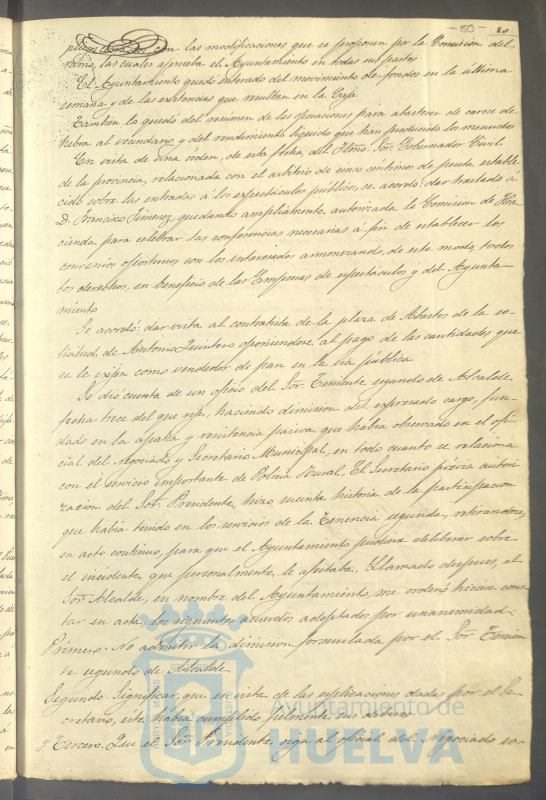 80
con las modificaciones que se proponen por la Comision del
ramo, las cuales aprueba el Ayuntamiento en todas sus partes
El Ayuntamiento quedó enterado del movimiento de fondos en la última
semana y de las existencias que resultan en la Caja
Tambien la quedó del resúmen de las operaciones para abastecer de carne de
hebra al vecindario y del rendimiento líquido que han producido los menudos
En vista de una órden, de esta fecha, del Iltmo Sor. Gobernador Civil
de la provincia, relacionada con el arbitrio de cinco céntimos de peseta estable
cido sobre las entradas á los espectáculos públicos, se acordó: dar traslado á
D. Francisco Jimenez, quedando ampliamente autorizada la Comision de Ha
cienda para celebrar las conferencias necesarias á fin de establecer los
convenios oportunos con los interesados armonizando, de este modo, todos
los derechos, en beneficio de las Empresas de espectáculos y del Ayunta-
miento
Se acordó: dar vista al contratista de la plaza de Abastos de la so-
licitud de Antonio Quintero oponiendose al pago de las cantidades que
se le exijen como vendedor de pan en la via pública
Se dió cuenta de un oficio del Sor. Teniente segundo de Alcalde
fecha trece del que rije, haciendo dimision del expresado cargo, fun-
dado en la apatia y resistencia pasiva que habia observado en el ofi-
cial del Negociado y Secretario Municipal, en todo cuanto se relaciona
con el servicio importante de Policia Rural. El Secretario prévia autori-
zacion del Sor. Presidente, hizo sucinta historia de la participacion
que habia tenido en los servicios de la Tenencia segunda, retirandose,
en acto contínuo, para que el Ayuntamiento pudiera deliberar sobre
el incidente, que personalmente le afectaba. Llamado despues, el
Sor. Alcalde, en nombre del Ayuntamiento, me ordenó hiciera cons-
tar en acta, los siguientes acuerdos adoptados por unanimidad.
Primero. No admitir la dimision formulada por el Sor Tenien
te segundo de Alcalde
Segundo. Significar, que en vista de las esplicaciones dadas por el Se-
cretario, este habia cumplido fielmente sus deberes
y Tercero. Que el Sor. Presidente, oiga al oficial del Negociado so-
Ayuntamiento de
HUELVA